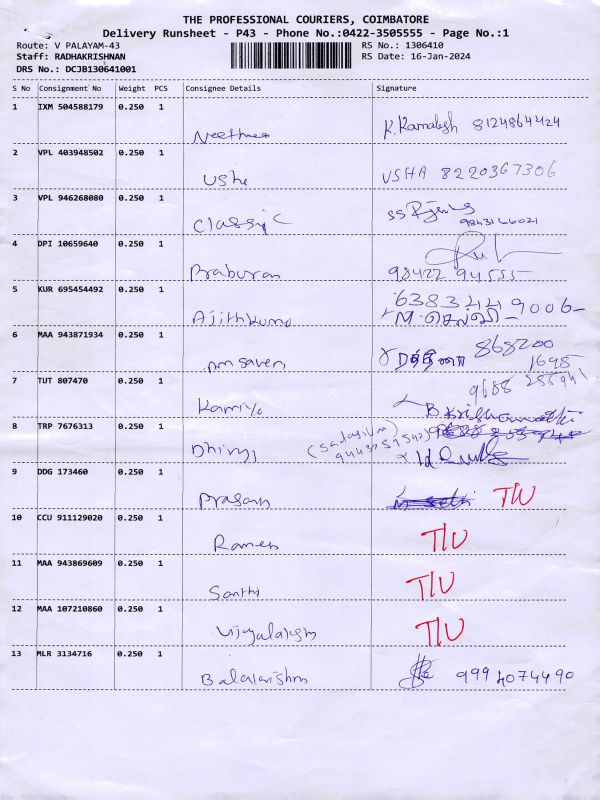 THE PROFESSIONAL COURIERS, COIMBATORE
Delivery Runsheet - P43 - Phone No.:0422-3505555 - Page No.:1
Route: V PALAYAM-43
RS No.: 1306410
Staff: RADHAKRISHNAN
RS Date: 16-Jan-2024
DRS No.: DCJB130641001
S No Consignment No Weight PCS Consignee Details Signature
1 IXM 504588179 0.250 1
K. Kamalesh 8124864424
2 VPL 403948502 0.250 1
Usha USHA 8220367306
3 VPL 946268080 0.250 1
Classic 9843166021
4 DPI 10659640 0.250 1
Praburan 98422 94555
5 KUR 695454492 0.250 1
Ajithkuma 9006
6 MAA 943871934 0.250 1
868200
1698
7 TUT 807470 0.250 1
9688
Kamiya
8 TRP 7676313 0.250 1
9 DDG 173460 0.250 1
Prasan T/U
10 CCU 911129020 0.250 1
Ramen T/U
11 MAA 943869609 0.250 1
Santhi T/U
12 MAA 107210860 0.250 1
Vijayalaksm T/U
13 MLR 3134716 0.250 1
Balakrishnn 9994074490